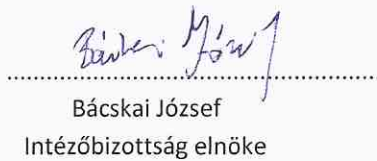 Bácskai József
Bácskai József
Intézőbizottság elnöke